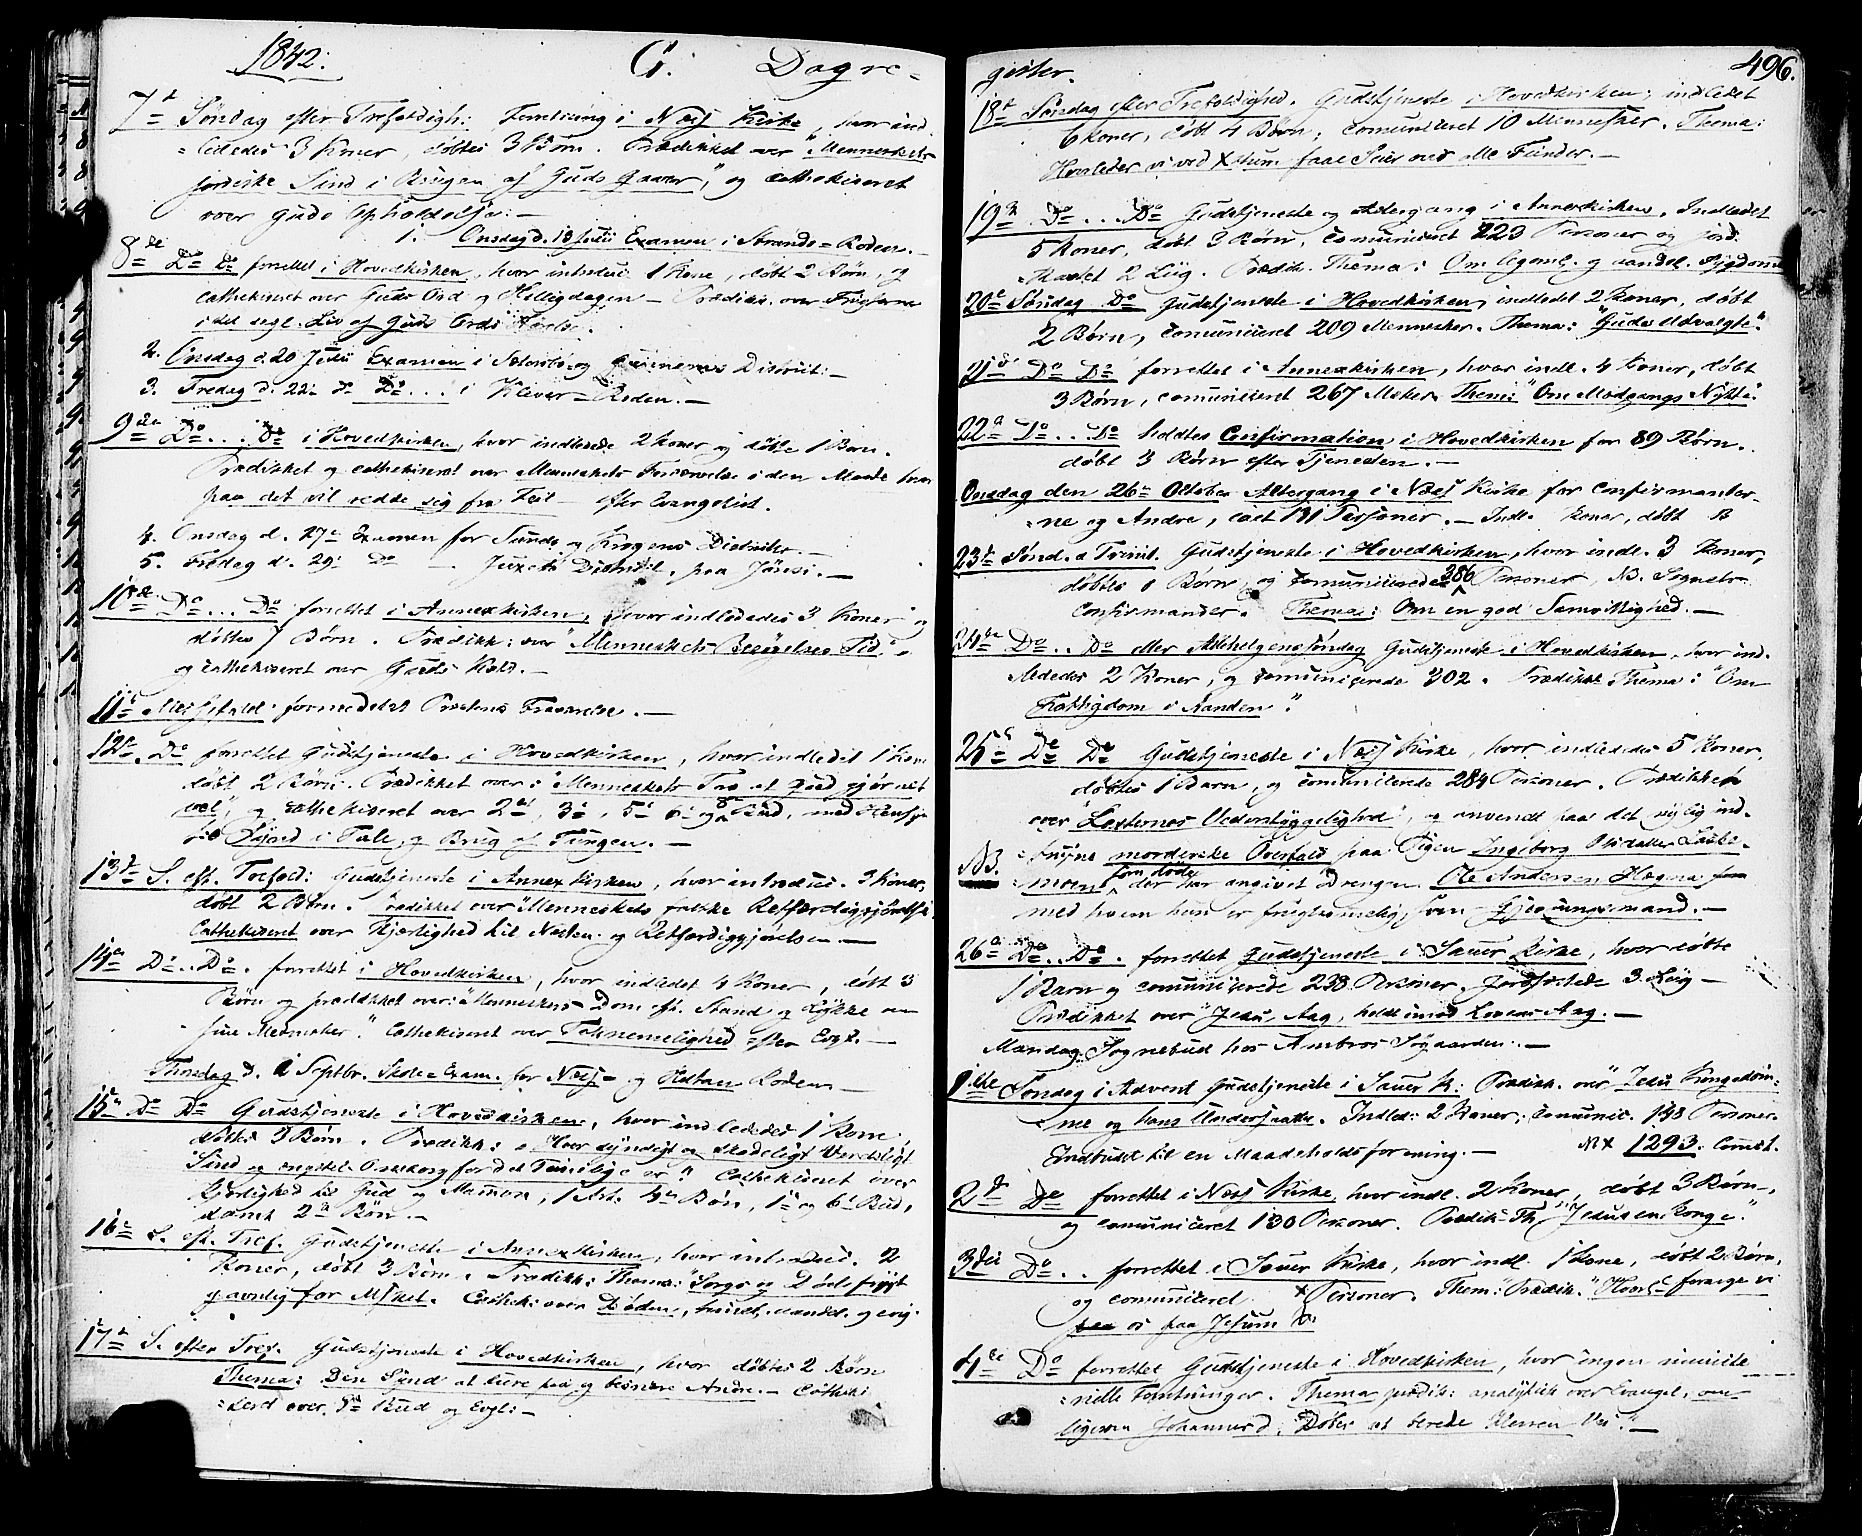 1842.
G. Dagre-
7de Søndag efter Trefoldigh: Forretning i Næsj Kirke, hvor ind
=lededes 3 Koner, døbtes 3 Børn. Prædikket over "Menneskets
jordiske Sind i Brugen af Guds Gaver", og cathekiseret
over Guds Opholdelse: —
1. Onsdag d. 13 Julii Examen i Strands=Roden.
8de Do Do forrettet i Hovedkirken, hvor introduc. 1 Kone, døbt 2 Børn, og
cathekiseret over Guds Ord og Helligdagen — Prædik. over
i det Liv af Guds Ords
2. Onsdag d. 20 Julii Examen i og District: —
3. Fredag d. 22. Do i Klever=Roden. —
9de Do . . . Do i Hovedkirken, hvor indlede 2 Koner og døbte 1 Barn.
Prædikket og cathekiseret over Menneskets i den Maade hvor
paa det vil redde sig fra efter Evangeliet.
4. Onsdag d. 27de Examen for Sunds og Krogens Districter. —
5. Fredag d. 29. Do — District, paa —
10de Do . . . Do forrettet i Annexkirken, hvor indlededes 3 Koner og
døbtes 7 Børn. Prædikk: over "Menneskets Besøgelses Tid",
og cathekiseret over Guds Kald. —
11te Messefald formedelst Præstens Fraværelse. —
12te Do forrettet Gudstjeneste i Hovedkirken, hvor indledet 1 Kone
døbt 2 Børn. Prædikket over: "Menneskets Tro at Gud gjør alt
vel", og cathekiseret over 2det, 3de, 5te 6te og 8de Bud, med Hensyn
til Synd i Tale, og Brug af Tungen. —
13de S. eft. Trefold: Gudstjeneste i Annexkirken, hvor introduc. 3 Koner,
døbt 2 Børn. Prædikket over "Menneskets falske Retfærdiggjørelse
Cathekiseret over Kjærlighed til Næsten og Retfærdiggjørelsen —
14de Do . . Do. forrettet i Hovedkirken, hvor indledet 4 Koner, døbt 3
Børn og prædikket over: "Menneskens Dom eft. Stand og Lykke om
sine Medmsker." Cathekiseret over Taknemelighed efter Evgl. —
Thorsdag d. 1 Septbr. Skole=Exam. for Næsj= og Roden —
15de Do Do Gudstjeneste i Hovedkirken, hvor indlededes 1 Kone
døbtes 3 Børn. Prædikk: o. Hvor syndigt og skadeligt Verdsligt
Sind og ængstel. Omsorg for det Timelige er." Cathekiseret over
Kjærlighed til Gud og Mammon, 1 Art. 4de Bøn, 1ste og 6te Bud,
samt 2den Bøn. —
16de S. eft. Tref. Gudstjeneste i Annexkirken, hvor introduc. 2
Koner, døbt 3 Børn. Prædikk: Thema: "Sorgs og Døds frygt
gavnlig for Msket. Cathek: over Døden, timel. aandel. og evig.
17de S. efter Tref. Gudstjeneste i Hovedkirken, hvor døbtes 2 Børn
Thema: Den Synd at lure paa og besnære Andre. — Cathekise
=serd over. 3die Bud og Evgl: —
496.
gister.
18de Søndag efter Trefoldighed. Gudstjeneste i Hovedkirken; indledet
6 Koner, døbt 4 Børn; comuniceret 10 Mennesker. Thema:
Hvorledes vi ved Xstum faae Seier over alle Fiender. —
19de Do . . . Do Gudstjeneste og Altergang i Annexkirken. Indledet
5 Koner, døbt 3 Børn, comuniceret 223 Personer og jord-
paakastet 2 Liig. Prædik. Thema: Om legeml. og aandel. Sygdomme
20de Søndag Do Gudstjeneste i Hovedkirken, indledet 2 Koner, døbt
2 Børn, comuniceret 209 Mennesker. Thema: "Guds Udvalgte."
21de Do Do forrettet i Annexkirken, hvor indl. 4 Koner, døbt
3 Børn, comuniceret 267 Msker. Thema: "Om Modgangs Nytte".
22de Do . . Do holdtes Confirmation i Hovedkirken for 89 Børn.
døbt 3 Børn efter Tjenesten. —
Onsdag den 26de October Altergang i Næsj Kirke for Confirmanter-
=ne og Andre, i alt 181 Personer. — Indl. Koner, døbt B
23de Sønd. e. Trinit. Gudstjeneste i Hovedkirken, hvor indl. 3 Koner,
døbtes 1 Børn, og comunicerede 386 Personer, NB.
Confirmander. Thema: Om en god Samvittighed. —
24de Do . . Do eller Allehelgens Søndag Gudstjeneste i Hovedkirken, hvor ind-
ledede 2 Koner, og comunicerede 302. Prædikk. Thema: "Om
Fattigdom i Aanden".
25de Do Do Gudstjeneste i Næsj Kirke, hvor indlededes 5 Koner,
døbtes 1 Barn, og comunicerede 284 Personer. Prædikket
over "Lasternes Vederstyggelighed", og anvendt paa det nylig ind-
NB. =trufne morderiske Overfald paa Pigen Ingeborg Olsdatter
der har angivet Drengen Ole Andersen Hægna
med hvem hun er frugtsommelig, som Gjerningsmand. —
26de Do . . Do. forrettet Gudstjeneste i Sauer Kirke, hvor døbte
1 Barn og comunicerede 238 Personer. Jordfæstede 3 Liig —
Prædikket over "Jesu Aag, holdt imod Lovens Aag. —
Mandag Sognebud hos Ambros Søgaarden. —
1ste Søndag i Advent Gudstjeneste i Sauer K: Prædik. over "Jesu Kongedøm-
=me og hans Undersaatte. Indled: 2 Koner; comunic. 198 Personer
Indbudt til en Maadeholdsforening. — 1293. Comct.
2den Do forrettet i Næsj Kirke, hvor indl. 2 Koner, døbt 3 Børn,
og comuniceret 130 Personer. Prædik: Th. "Jesus en Konge".
3die Do . . forrettet i Sauer Kirke, hvor indl. 1 Kone, døbt 2 Børn,
og comuniceret Personer. Them: Prædik. "Hvorl. forarge vi
os paa Jesum"
4de Do forrettet Gudstjeneste i Hovedkirken, hvor ingen ministe
=rielle Forretninger. Thema prædik: analytisk over Evangel. om
ligesom Johannes d. Døber at berede Herren Vei." —